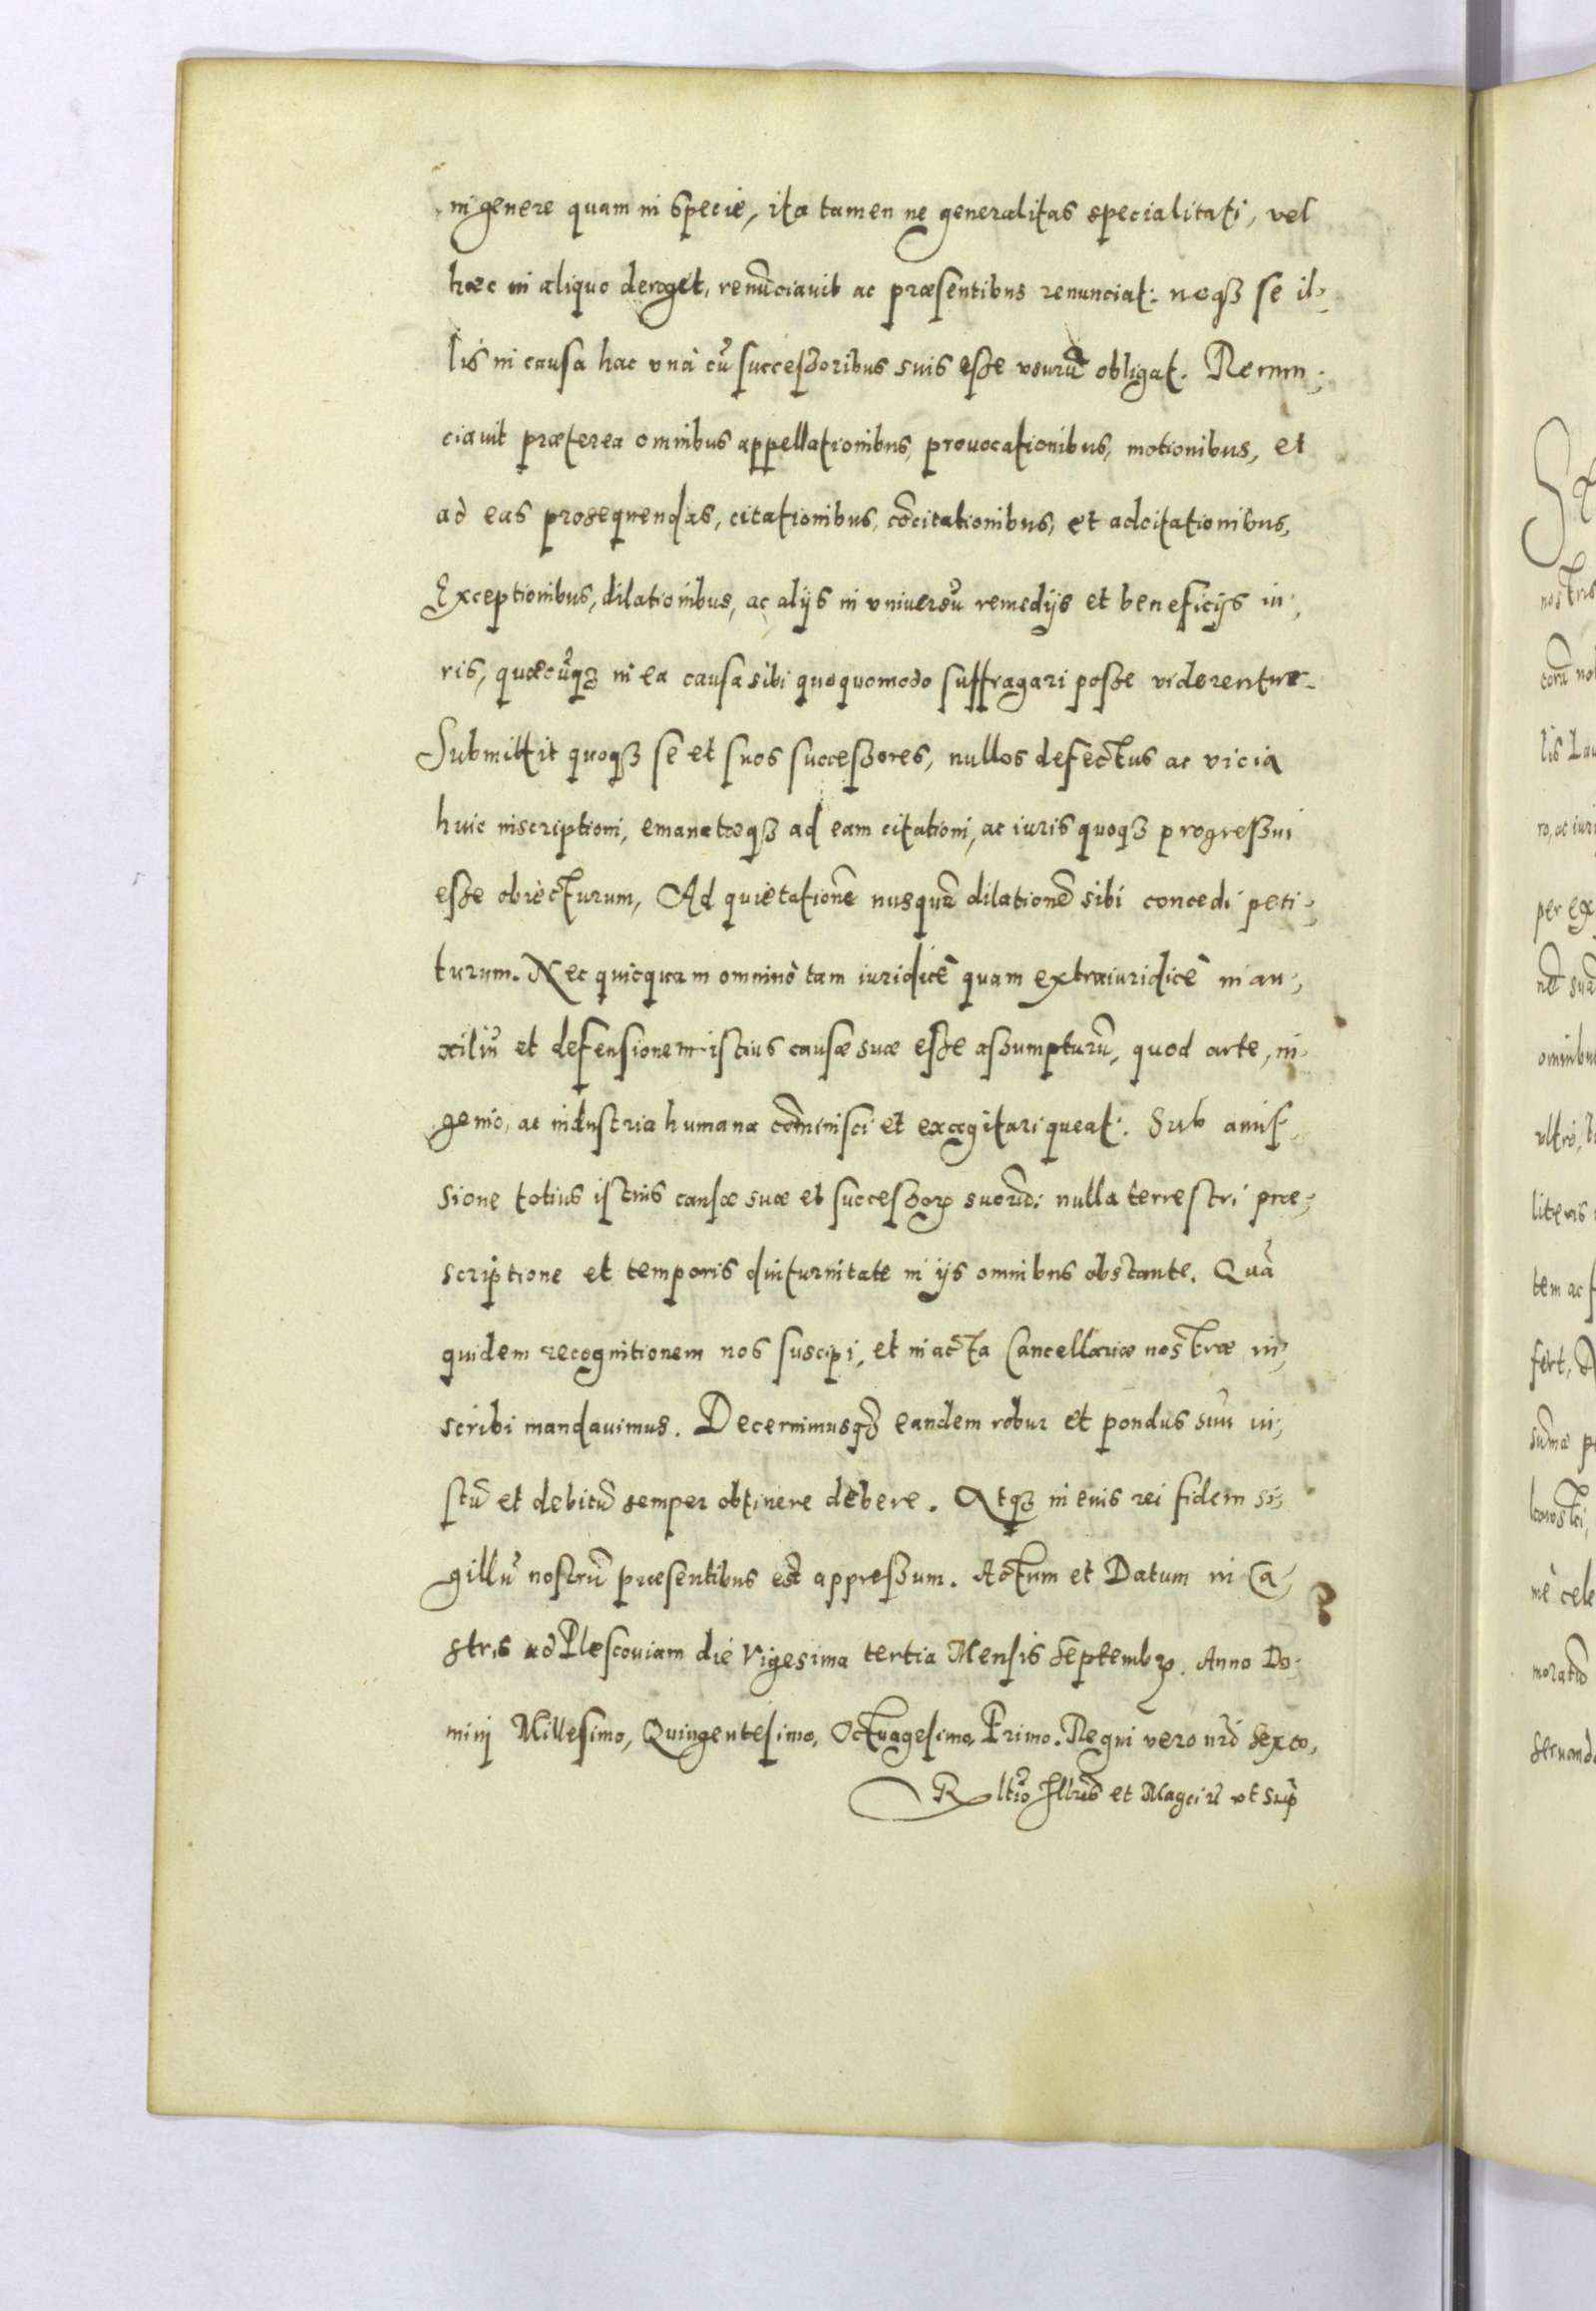 in genere quam in specie, ita tamen ne generalitas specialitati, vel
hæc in aliquo deroget, renũciauit ac præsentibus renunciat: neqꝫ se il-
lis in causa hac vnà cũ successoribus suis esse vsurũ obligat. Renun-
ciauit præterea omnibus appellationibus, prouocationibus, motionibus, et
ad eas prosequendas, citationibus, cõcitationibus, et adcitationibus,
Exceptionibus, dilationibus, ac alijs in vniuersũ remedijs et beneficijs iu-
ris, quæcũqꝫ in ea causa sibi quoquomodo suffragari posse viderentur.
Submittit quoqꝫ se et suos successores, nullos defectus ac vicia
huic inscriptioni, emanatæqꝫ ad eam citationi, ac iuris quoqꝫ progressui
esse obiecturum, Ad quietationẽ nusquã dilationẽ sibi concedi peti-
turum. Nec quicquam omninò tam iuridicè quam extraiuridicè in au-
xiliũ et defensionem istius causæ suæ esse assumpturũ, quod arte, in-
genio, ac industria humana cõminisci et excogitari queat. Sub amis-
sione totius istius causæ suæ et successorꝝ suorũ: nulla terrestri præ-
scriptione et temporis diuturnitate in ijs omnibus obstante. Quã
quidem recognitionem nos suscipi, et in acta Cancellariæ nostræ in-
scribi mandauimus. Decernimusqꝫ eandem robur et pondus suũ iu-
stũ et debitũ semper obtinere debere. Atqꝫ in euis rei fidem si-
gillũ nostrũ præsentibus est appressum. Actum et Datum in Ca-
stris ad Plescouiam die Vigesima tertia Mensis Septembꝝ. Anno Do-
minj Millesimo, Quingentesimo, Octuagesimo, Primo. Regni vero nr̃i sexto,
R ltio Illuris et Magcij vt sup̃